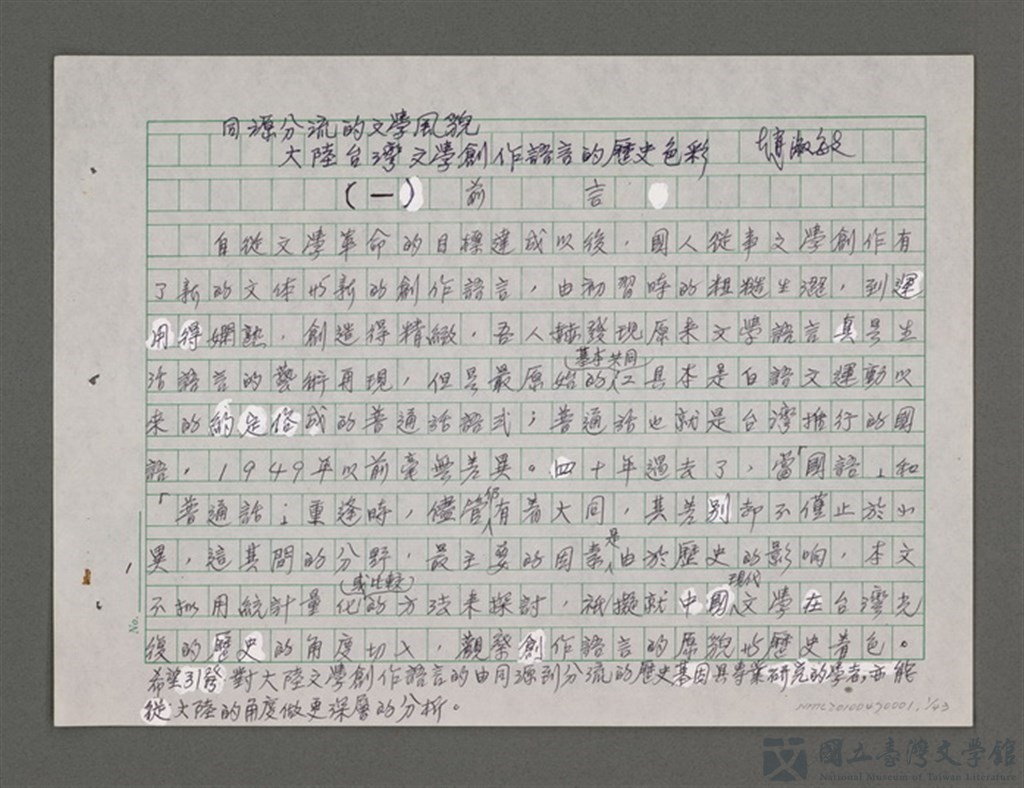 同源分流的文學風貌
大陸台灣文學創作語言的歷史色彩 趙淑敏
(一) 前 言
自從文學革命的目標達成以後，國人從事文學創作有
了新的文体與新的創作語言，由初習時的粗糙生澀，到運
用得嫻熟，創造得精緻，吾人赫發現原來文學語言真是生
活語言的藝術再現，但是最原始的(基本共同)工具本是白話文運動以
來的約定俗成的普通話語式；普通話也就是台灣推行的國
語，1949年以前毫無差異。四十年過去了，當「國語」和
「普通話」重逢時，儘管仍有著大同，其差別却不僅止於小
異，這其間的分野，最主要的因素是由於歷史的影响，本文
不擬用統計量化(或比較)的方法來探討，祇擬就中國現代文學在台灣光
後的歷史的角度切入，觀察創作語言的原貌與歷史着色。
希望引發對大陸文學創作語言的由同源到分流的歷史基因具專業研究的學者，亦能
從大陸的角度做更深層的分析。
No.
NMTL20100470001, 1/43
國立臺灣文學館
National Museum of Taiwan Literature